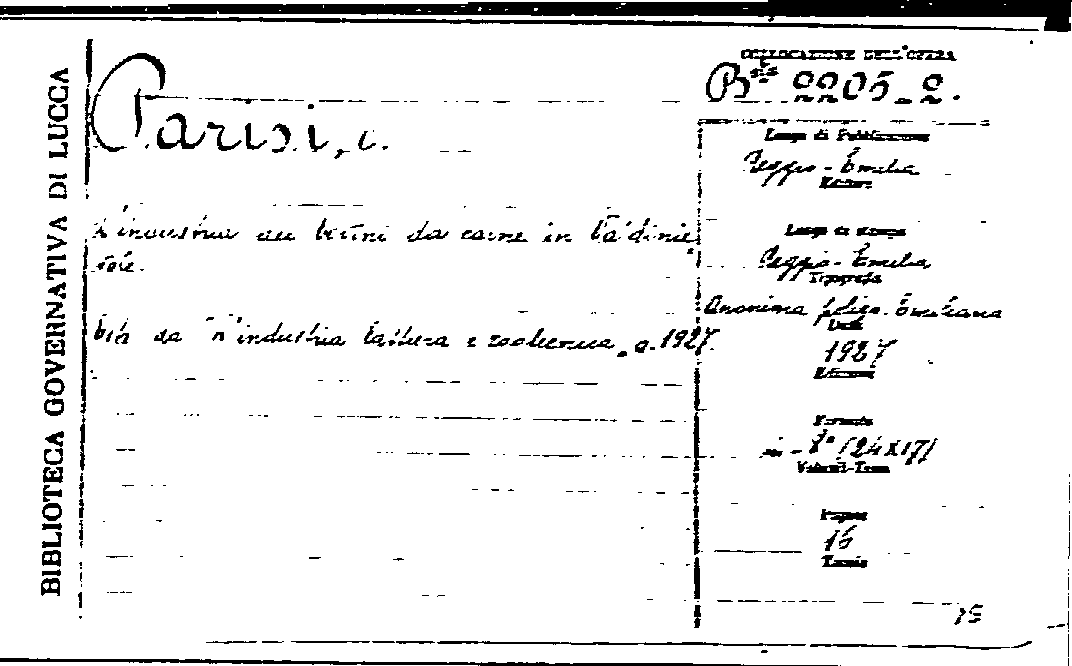 BIBLIOTECA GOVERNATIVA DI LUCCA
COLLOCAZIONE DELL'OPERA
B.ta 2205_2.
Parisi,
Luogo di Pubblicazione
Reggio-Emilia
Editore
L'industria dei bovini da carne in
Luogo di stampa
Reggio-Emilia
Tipografia
Anonima poligr. Emiliana
Data
Estr. da "L'industria lattiera e zootecnica", a. 1927.
1927
Edizione
Formato
in-8° (24x17)
Volumi-Tomi
Pagine
16
Tavole
15